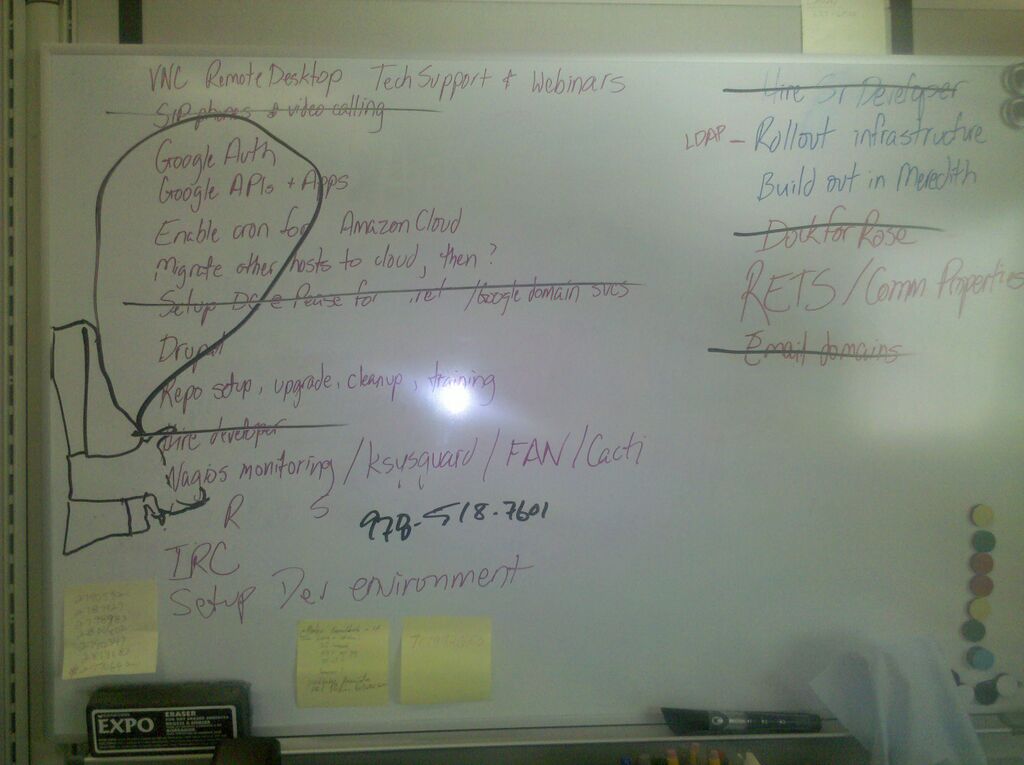 VNC Remote Desktop Tech Support & Webinars
SIP phones & video calling
Google Auth
Google APIs + Apps
Enable cron for Amazon Cloud
Migrate other hosts to cloud, then?
Setup DC @ Pease for .ret /Google domain svcs
Drupal
Repo setup, upgrade, cleanup, training
Hire developer
Nagios monitoring /ksysguard/FAN/Cacti
R S
978-518-7601
IRC
Setup Dev environment
Hire Sr Developer
LDAP - Rollout infrastructure
Build out in Meredith
Dock for Rose
RETS/Comm Properties
Email domains
EXPO
ERASER